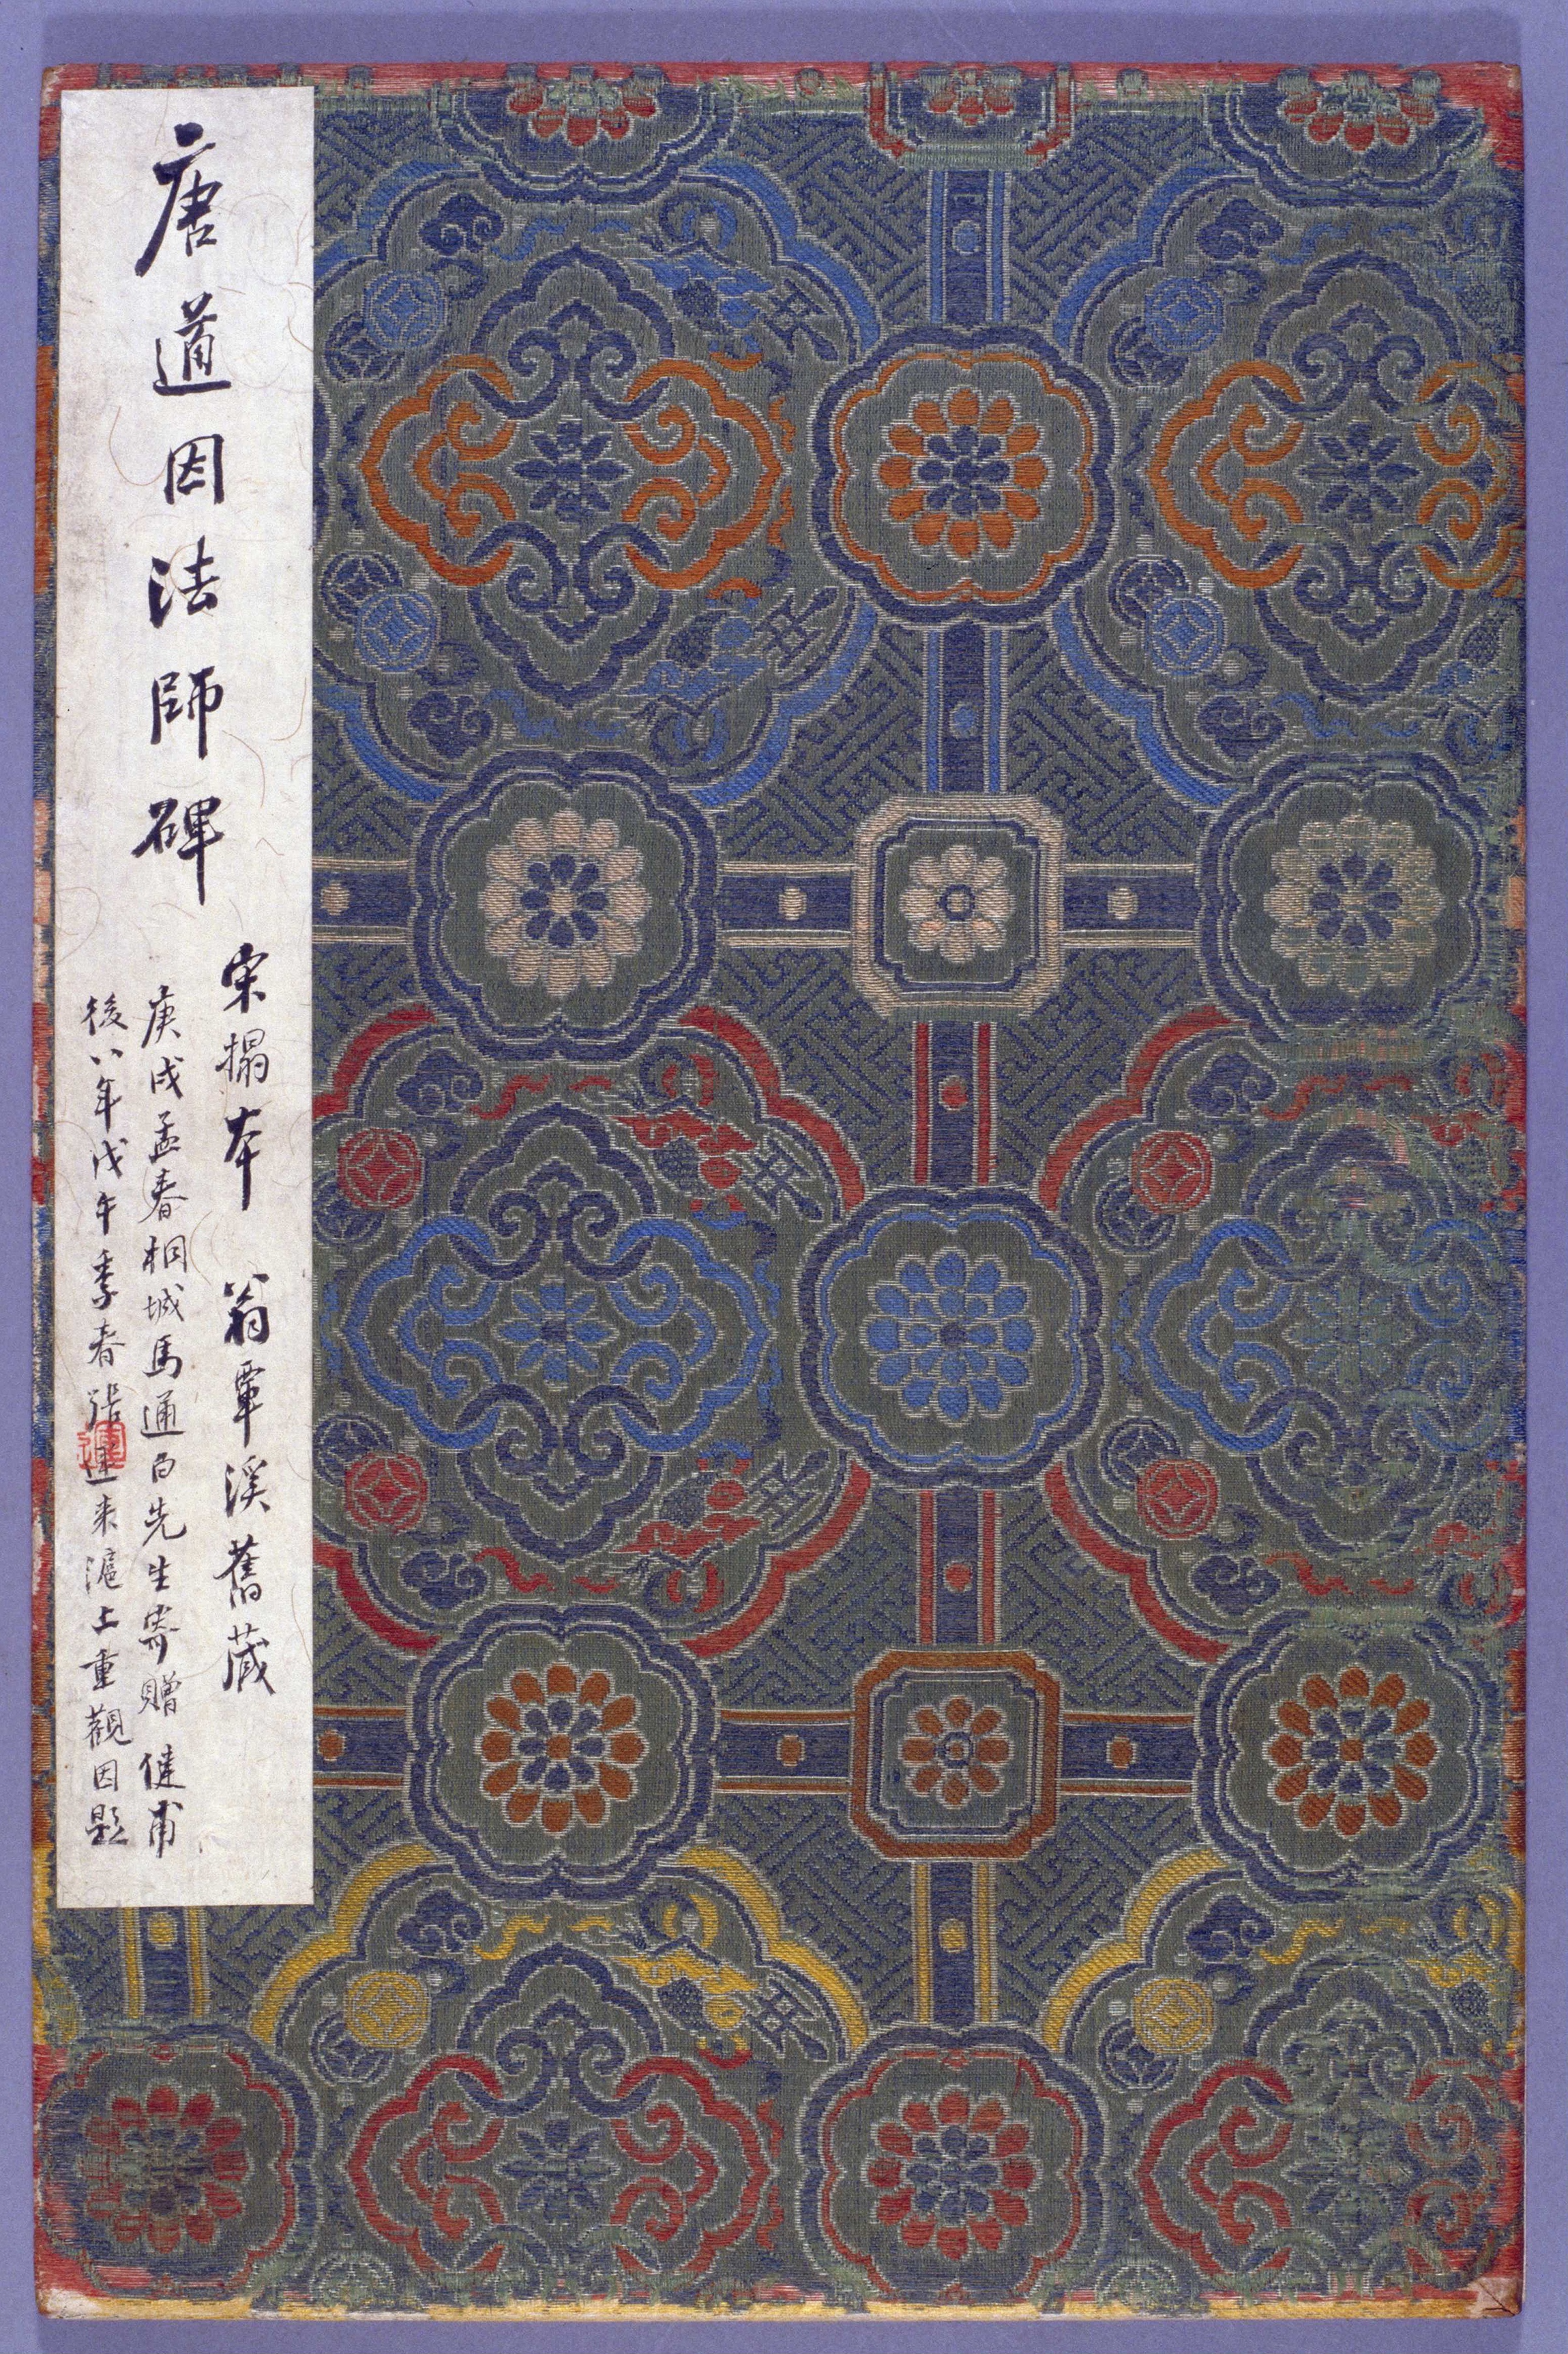 唐道因法師碑
宋搨本 翁覃溪舊藏
庚戌孟春桐城馬通白先生寄贈健甫
後八年戊午季春張運來滬上重觀因題
運